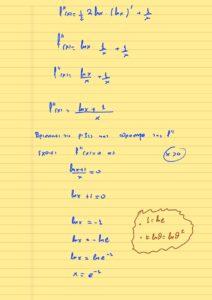 f''(x) = 1/2 2lnx · (lnx)' + 1/x
f''(x) = lnx · 1/x + 1/x
f''(x) = lnx/x + 1/x
f''(x) = lnx + 1 / x
Βρίσκουμε τις ρίζες και πρόσημο της f''
Έχουμε f''(x) = 0 ⇔ x>0
lnx+1 / x = 0
lnx + 1 = 0
lnx = -1
lnx = -lne
lnx = lne⁻¹
x = e⁻¹
· 1 = lne
· κlnθ = lnθᵏ